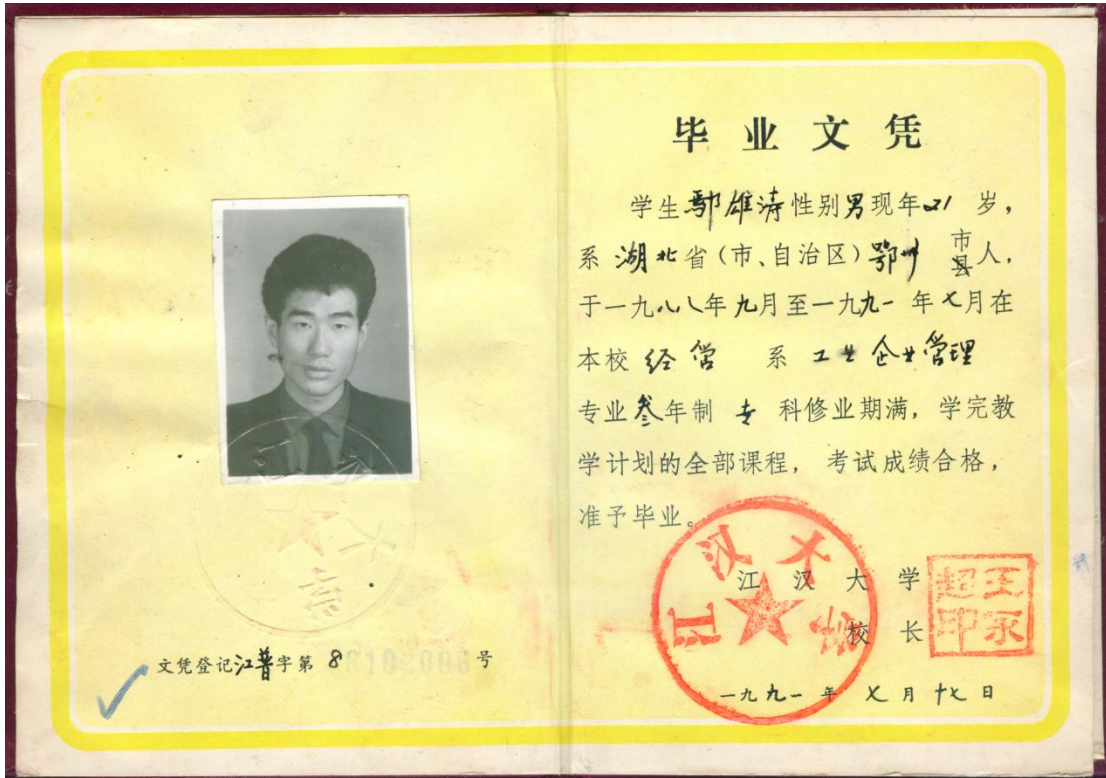 毕业文凭
学生鄢雄涛性别男现年21岁，
系湖北省（市、自治区）鄂州市县人，
于一九八八年九月至一九九一年七月在
本校经营系工业企业管理
专业叁年制专科修业期满，学完教
学计划的全部课程，考试成绩合格，
准予毕业。
江汉大学
校长
江汉大学
一九九一年七月十七日
文凭登记江普字第8号